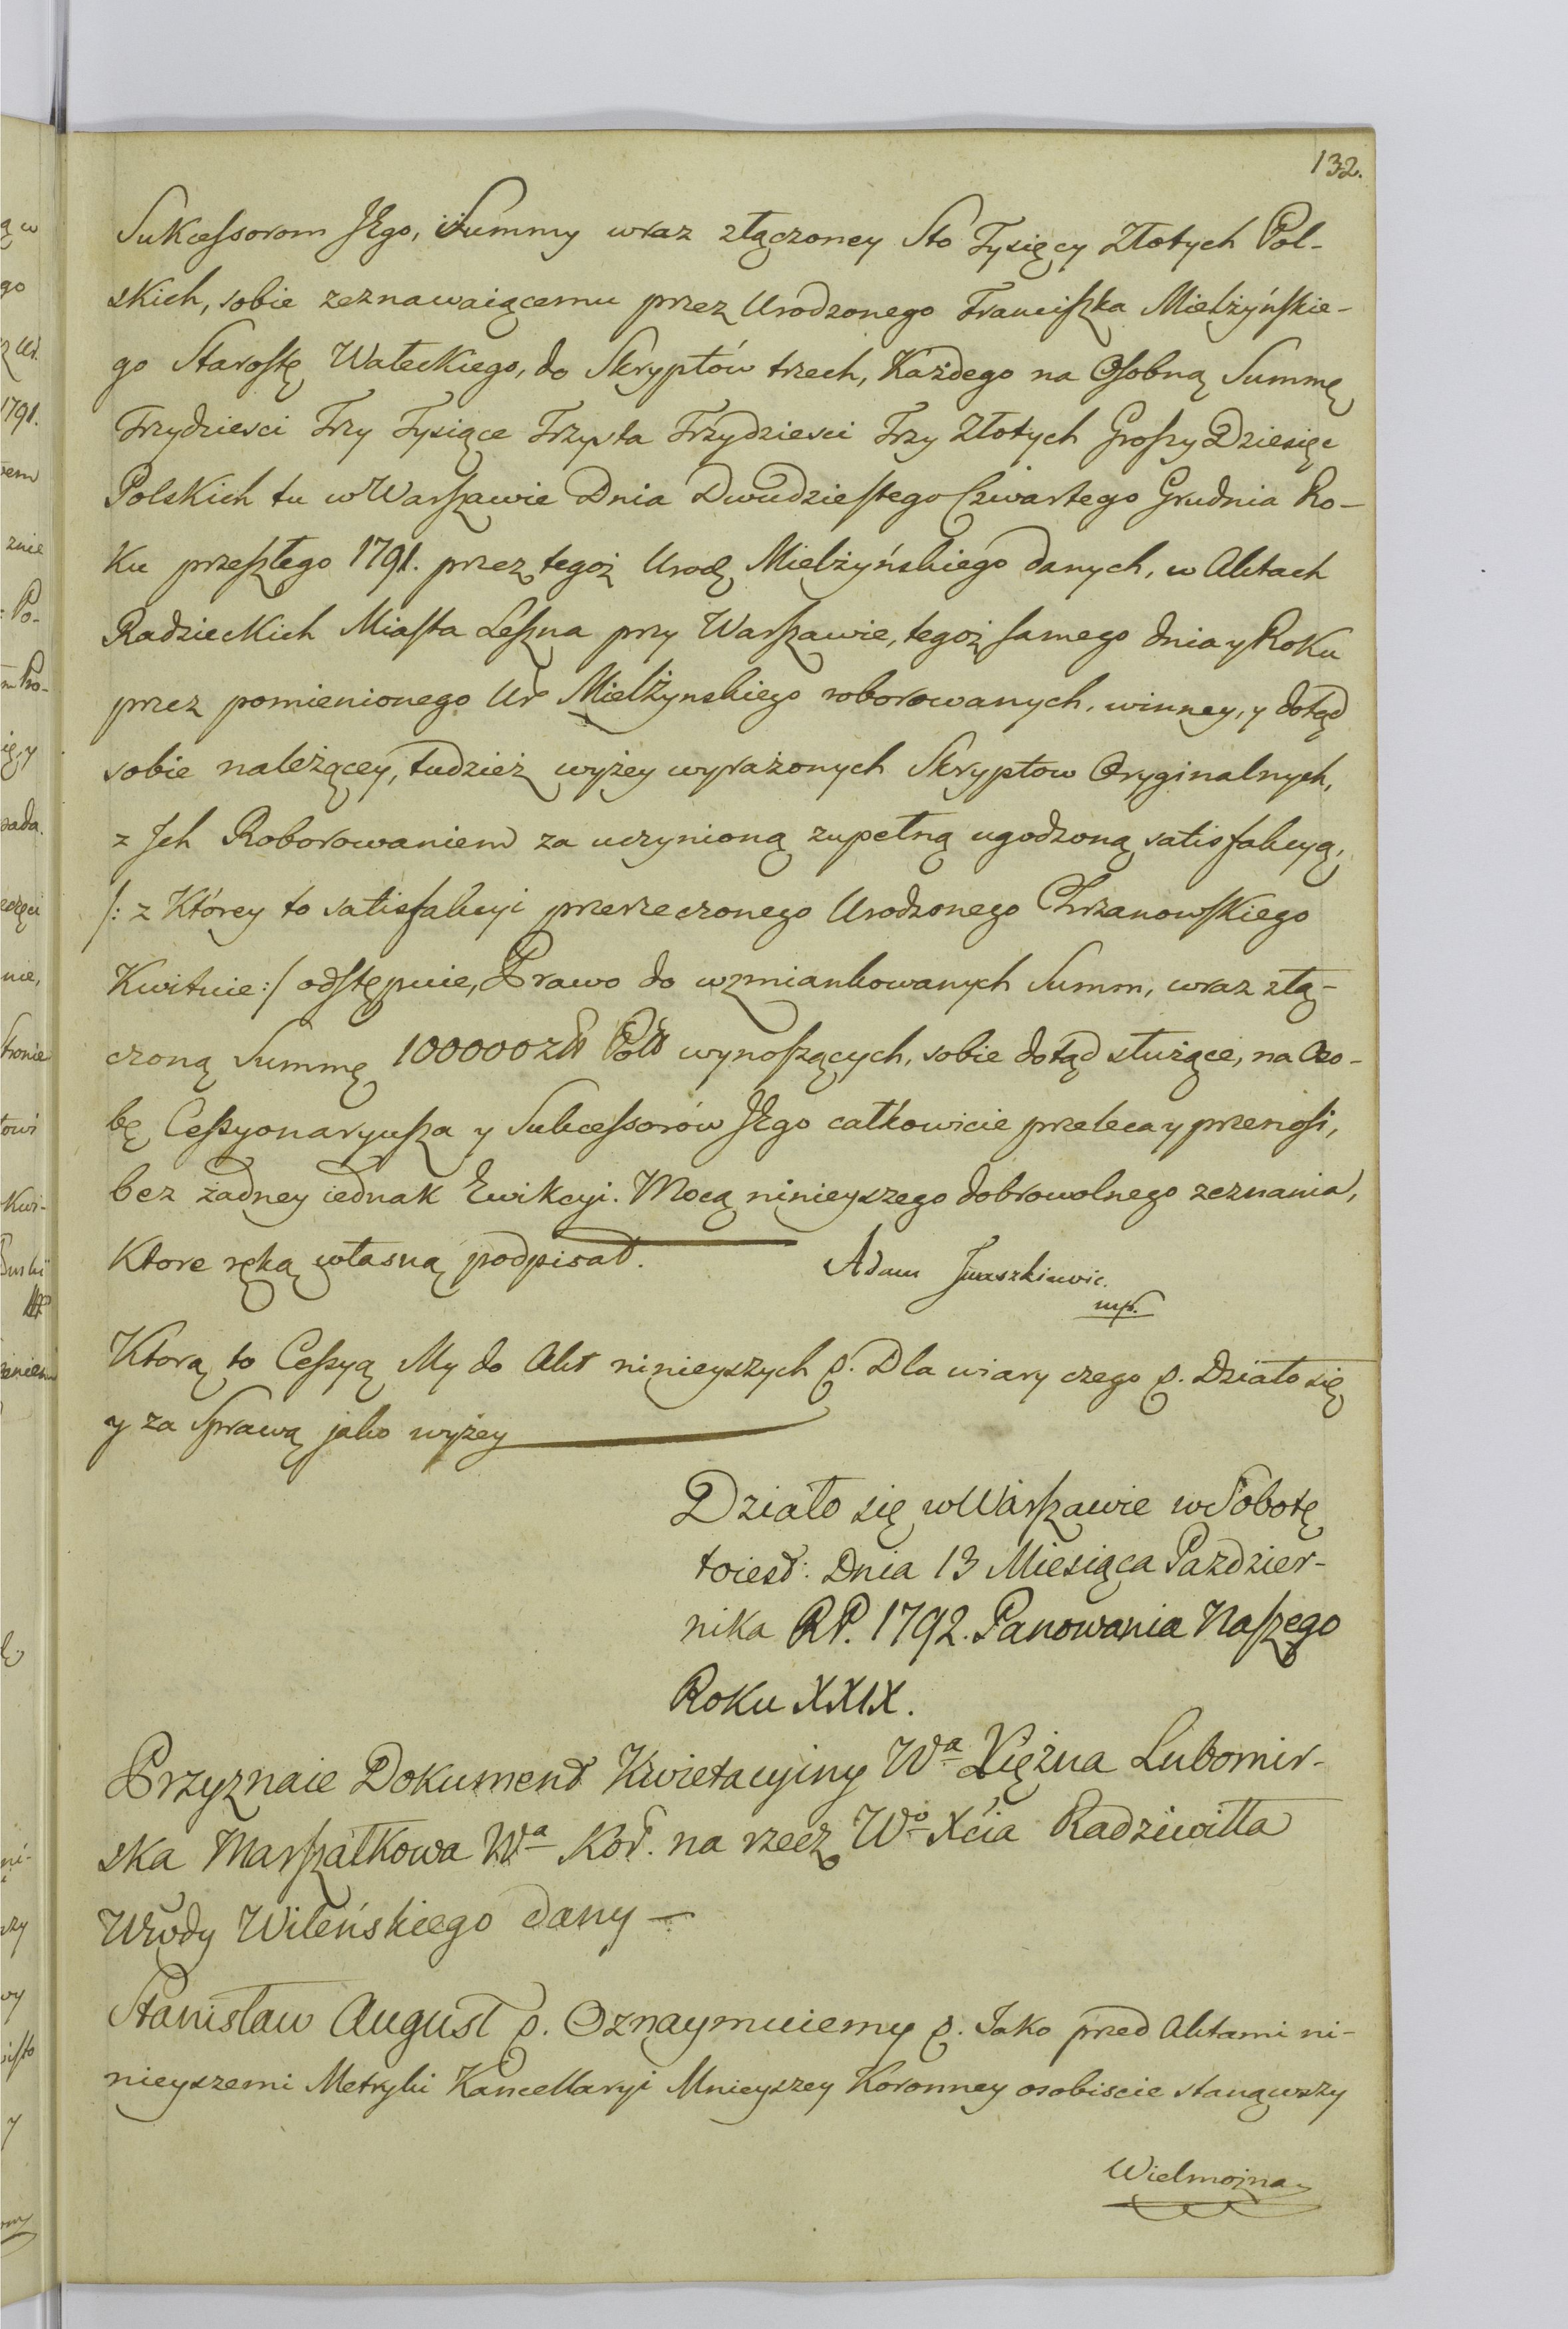 132.
Sukcessorom JEgo, Summy wraz złączoney Sto Tysięcy Złotych Pol-
skich, sobie zeznawaiącemu przez Urodzonego Franciszka Mielżyńskie-
go Starostę Wałeckiego, do Skryptów trzech, Każdego na Osobną Summę
Trzydziesci Trzy Tysiące Trzysta Trzydziesci Trzy Złotych Groszy Dziesięc
Polskich tu w Warszawie Dnia Dwudziestego Czwartego Grudnia Ro-
ku przeszłego 1791. przez tegoż Urodz Mielżyńskiego danych, w Aktach
Radzieckich Miasta Leszna przy Warszawie, tegoż samego dnia y Roku
przez pomienionego Ur Mielżynskiego roborowanych, winney, y dotąd
sobie należącey, tudzież wyżey wyrażonych Skryptow Oryginalnych,
z Ich Roborowaniem za uczynioną zupełną ugodzoną satisfakcyą,
/: z Którey to satisfakcyi przerzeczonego Urodzonego Chrzanowskiego
Kwituie :/ odstępuie, Prawo do wzmiankowanych Summ, wraz złą-
czoną Summę 100000 zł Pol wynoszących, sobie dotąd służące, na Oso-
bę Cessyonaryusza y Sukcessorów JEgo całkowicie przeleca y przenosi,
bez żadney iednak Ewikcyi. Mocą ninieyszego dobrowolnego zeznania,
Ktore ręką własną podpisał.
Adam Juraszkiewic.
mp.
Ktorą to Cessyą My do Akt ninieyszych p. Dla wiary czego p. Działo się
y za Sprawą jako wyżey
Działo się w Warszawie w Sobotę
toiest: Dnia 13 Miesiąca Pazdzier-
nika RP. 1792. Panowania Naszego
Roku XXIX.
Przyznaie Dokument Kwietacyjny Wa Xiężna Lubomir-
ska Marszałkowa Wa Kor. na rzecz Wo Xcia Radziwiłła
Wwody Wileńskiego dany —
Stanisław August p. Oznaymuiemy p. Iako przed Aktami ni-
nieyszemi Metryki Kancellaryi Mnieyszey Koronney osobiscie stanąwszy
Wielmożna